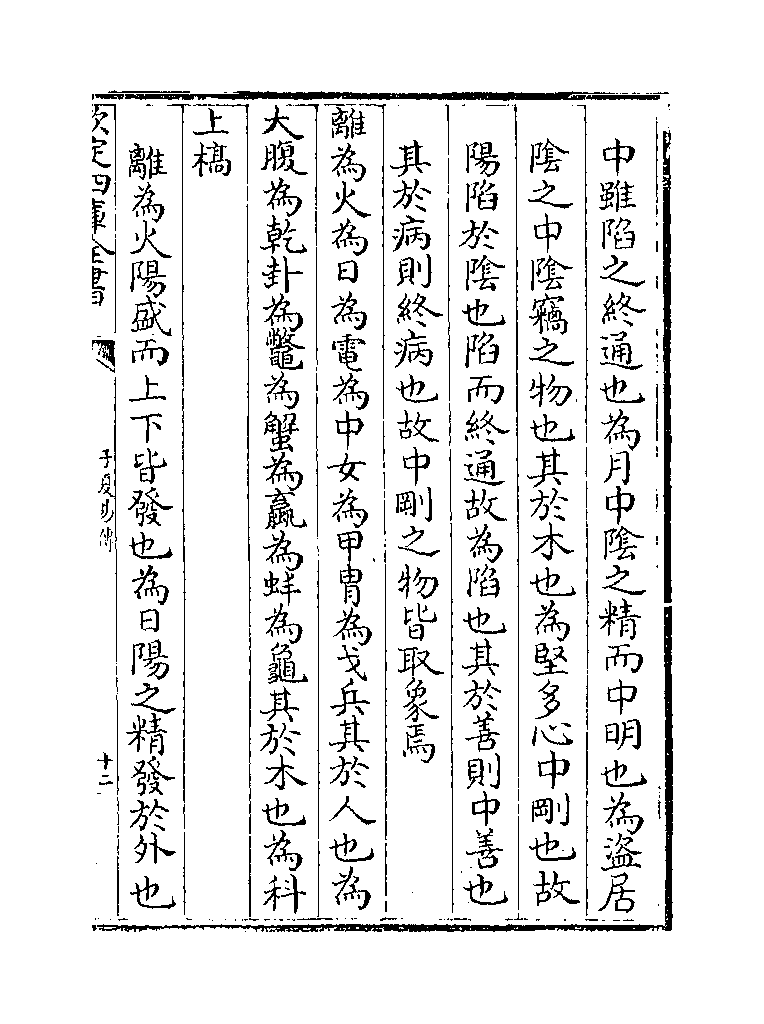 中雖陷之終通也為月中陰之精而中明也為盜居
陰之中陰竊之物也其於木也為堅多心中剛也故
陽陷於陰也陷而終通故為陷也其於善則中善也
其於病則終病也故中剛之物皆取象焉
離為火為日為電為中女為甲胄為戈兵其於人也為
大腹為乾卦為鼈為蟹為蠃為蚌為龜其於木也為科
上槁
離為火陽盛而上下皆發也為日陽之精發於外也
欽定四庫全書
子夏易傳
十二